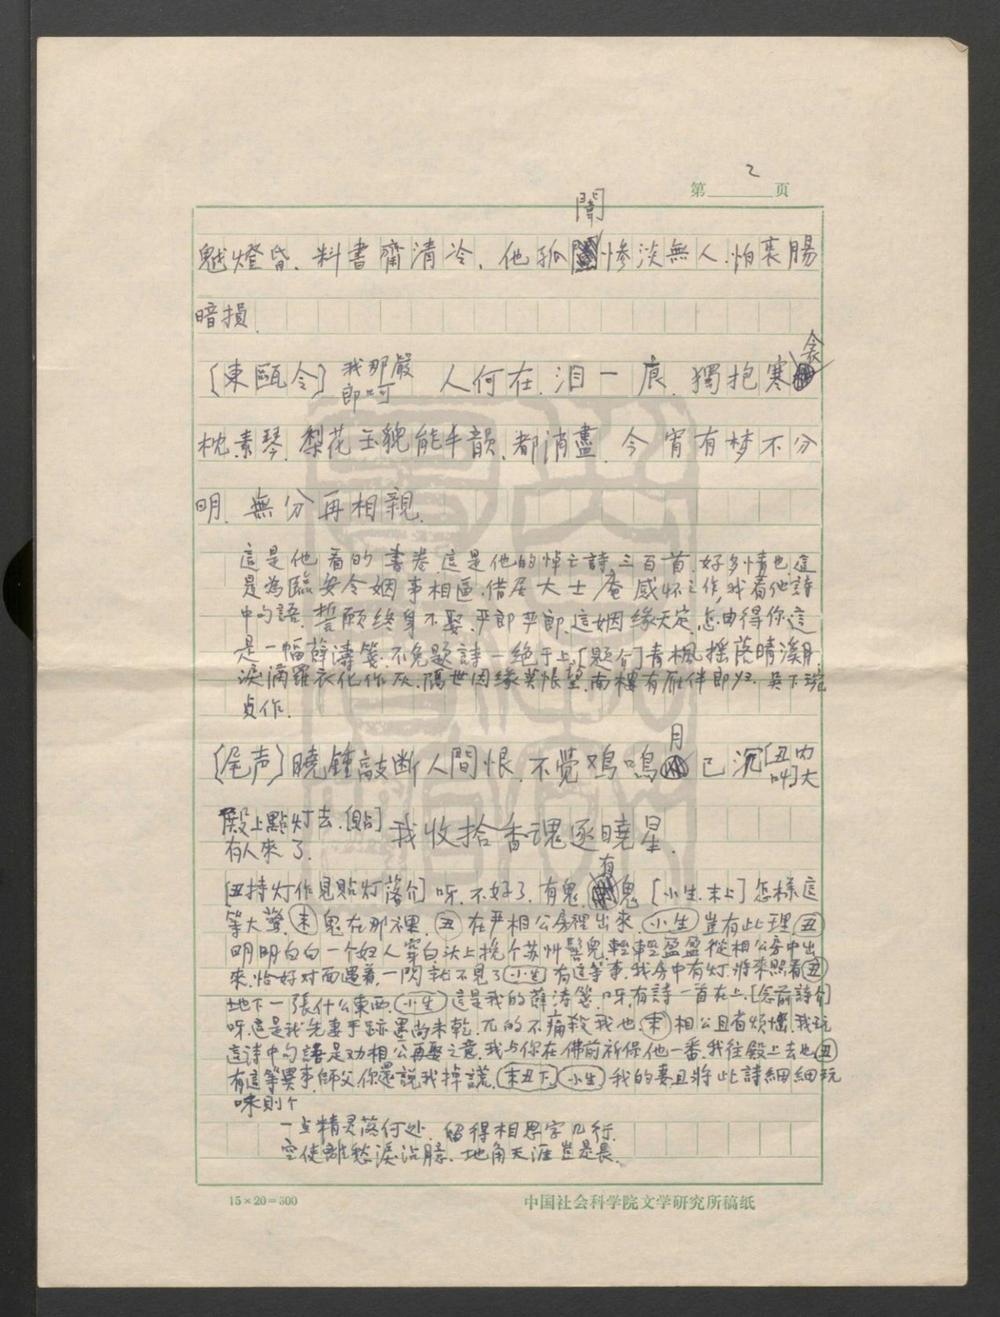 第 2 页
闈
魆燈昏.料書齋清冷.他孤 慘淡無人.怕衷腸
暗損.
衾
〔東甌令〕我那嚴郎呵 人何在.泪一痕.獨抱寒
枕.素琴.梨花玉貌能半韻.都消盡.今宵有梦不分
明.無分再相親.
這是他看的書卷.這是他的悼亡詩.三百首.好多情也.這
是為臨安令姻事相逼.借居大士庵感怀之作.我看他詩
中句語.誓願終身不娶.尹郎尹郎.這姻缘天定.怎由得你.這
是一幅薛濤箋.不免題詩一绝于上.〔題介〕青楓搖落晴溪月.
淚滴羅衣化作灰.隔世因缘莫悵望.南樓有雁伴郎归.吳下琬
貞作.
月
〔尾声〕曉鍾敲断人間恨.不覺鸡鳴 已沉〔丑内叫〕大
殿上點灯去.〔貼〕有人來了. 我收拾香魂逐曉星.
有
〔丑持灯作見貼灯落介〕呀.不好了.有鬼. 鬼〔小生.末上〕怎樣這
等大聲.(末)鬼在那裡.(丑)在尹相公房裡出來.(小生)豈有此理(丑)
明明白白一个妇人穿白头上挽个苏州髻兒.輕輕盈盈從相公房中出
來.恰好对面遇着.一閃就不見了(小生)有這等事.我房中有灯.將來照看(丑)
地下一張什么東西.(小生)這是我的薛涛箋.呀.有詩一首在上.〔念前詩介〕
呀.這是我先妻手跡.墨尚未乾.兀的不痛殺我也.(末)相公且省烦惱.我玩
這詩中句語是劝相公再娶之意.我与你在佛前祈保他一番.我往殿上去也(丑)
有這等異事.師父你還說我掉謊.(末丑下)(小生)我的妻且將此詩細細玩
味則个
一点精灵落何处.留得相思字几行.
空使離愁淚沾臆.地角天涯豈是長.
15×20=300
中国社会科学院文学研究所稿纸